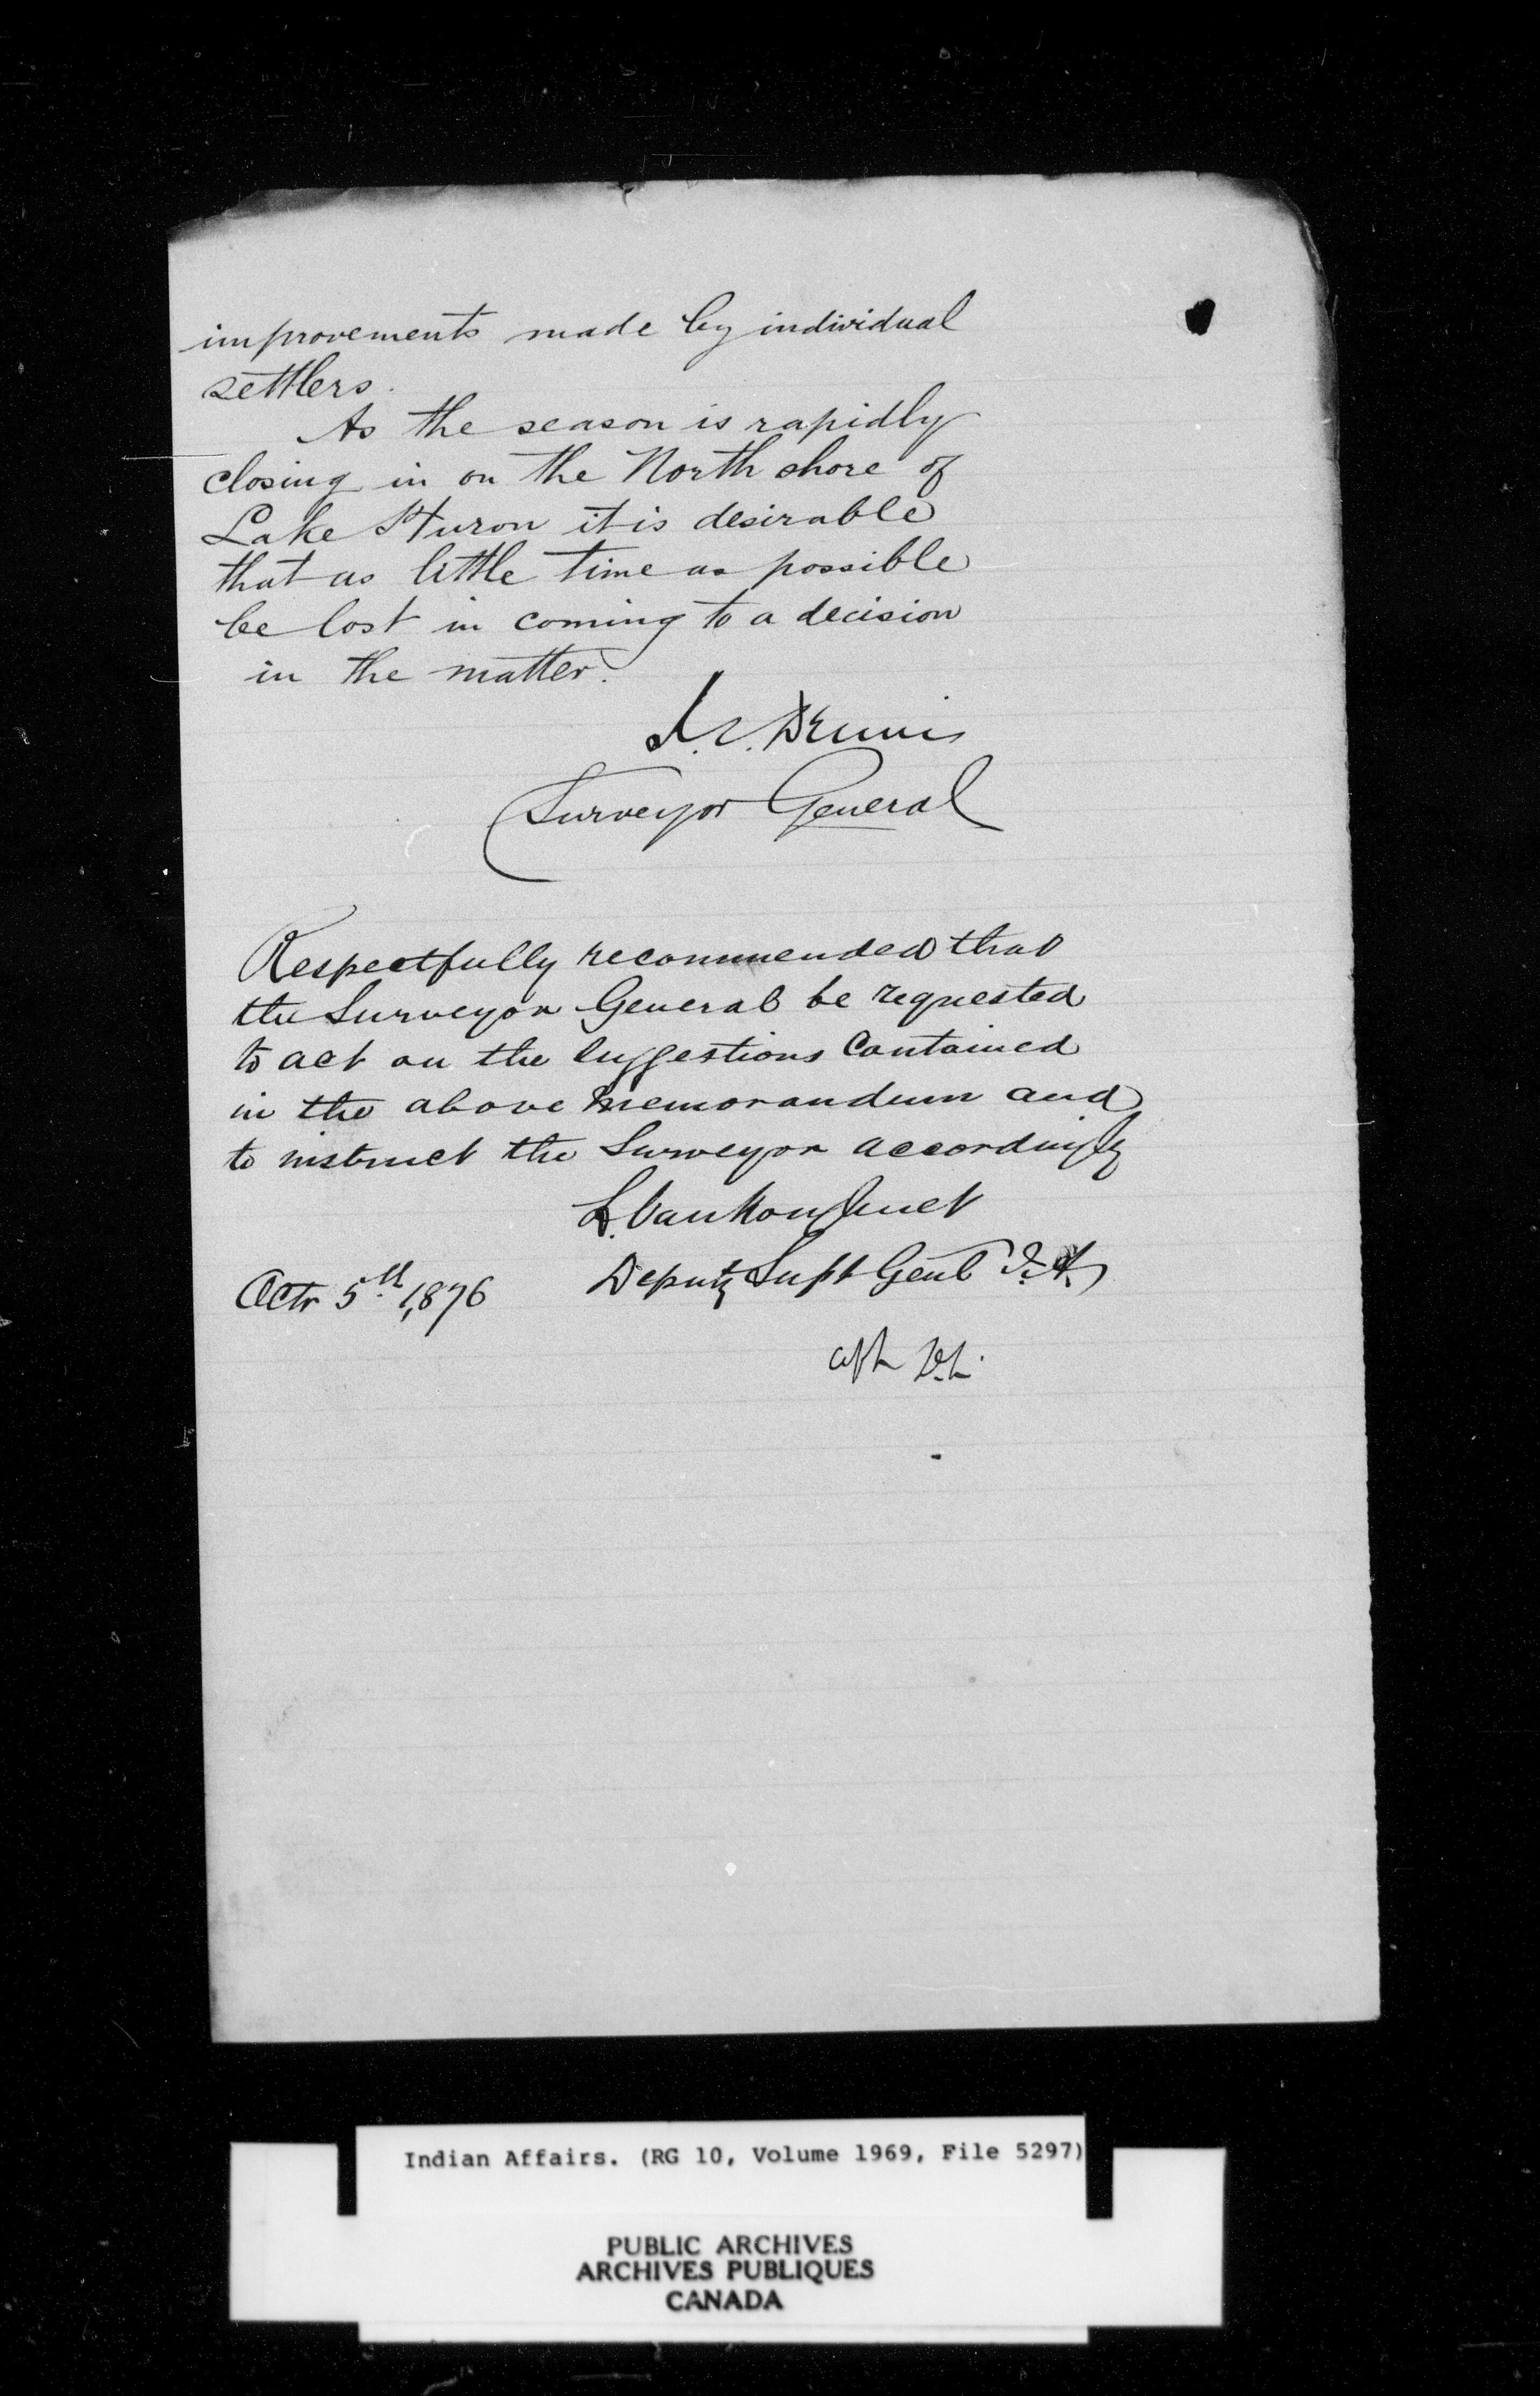 improvements made by individual
settlers.
As the season is rapidly
closing in on the North shore of
Lake Huron it is desirable
that as little time as possible
be lost in coming to a decision
in the matter.
J.S. Dennis
Surveyor General
Respectfully recommended that
the Surveyor General be requested
to act on the suggestions contained
in the above memorandum and
to instruct the Surveyor accordingly
L. Vankoughnet
Deputy Supt Genl I.A.
Octr 5th 1,876
Indian Affairs. (RG 10, Volume 1969, File 5297)
PUBLIC ARCHIVES
ARCHIVES PUBLIQUES
CANADA